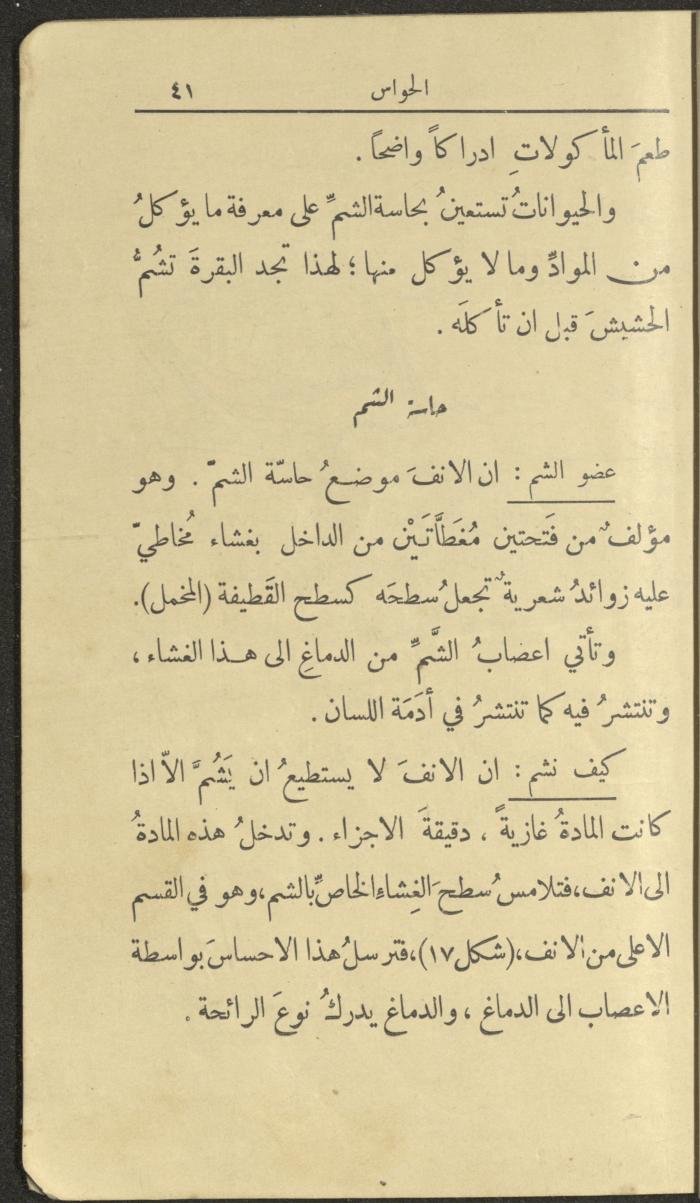 الحواس ٤١
طعمَ المأكولاتِ ادراكاً واضحاً .
والحيواناتُ تستعينُ بحاسة الشمِّ على معرفة ما يؤكلُ
من الموادِّ وما لا يؤكل منها ؛ لهذا تجد البقرةَ تشُمُّ
الحشيشَ قبل ان تأكلَه .
حاسة الشم
عضو الشم : ان الانفَ موضعُ حاسّة الشمّ . وهو
مؤلفٌ من فَتحتين مُغَطَّأتَيْن من الداخل بغشاء مُخاطيّ
عليه زوائدُ شعريةٌ تجعلُ سطحَه كسطح القَطيفة (المخمل).
وتأتي اعصابُ الشَّمِّ من الدماغِ الى هذا الغشاء ،
وتنتشرُ فيه كما تنتشرُ في أدَمَة اللسان .
كيف نشم : ان الانفَ لا يستطيعُ ان يَشُمَّ الاّ اذا
كانت المادةُ غازيةً ، دقيقةَ الاجزاء . وتدخلُ هذه المادةُ
الى الانف ، فتلامسُ سطحَ الغِشاء الخاصِّ بالشم ، وهو في القسم
الاعلى من الانف ، (شكل ١٧) ، فترسلُ هذا الاحساسَ بواسطة
الاعصاب الى الدماغ ، والدماغ يدركُ نوعَ الرائحة .